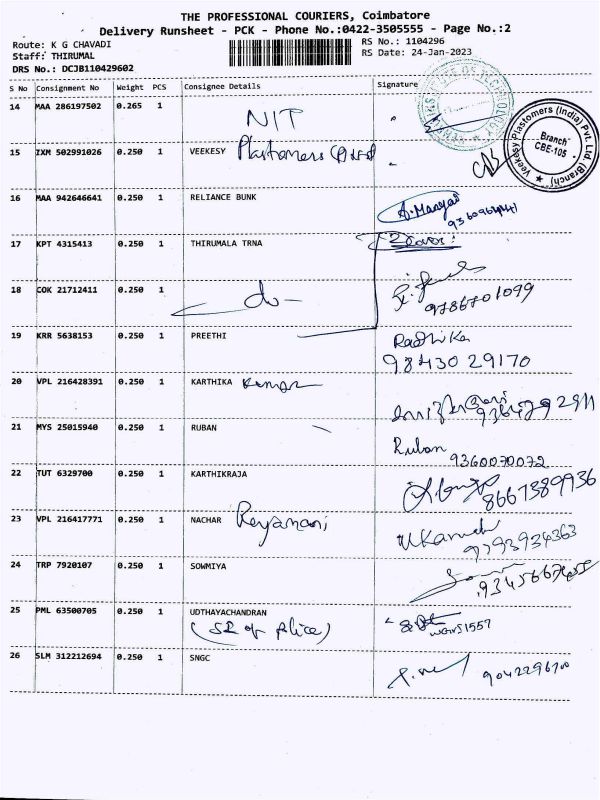 THE PROFESSIONAL COURIERS, Coimbatore
Delivery Runsheet - PCK - Phone No.:0422-3505555 - Page No.:2
Route: K G CHAVADI
RS No.: 1104296
Staff: THIRUMAL
RS Date: 24-Jan-2023
DRS No.: DCJB110429602
S No Consignment No Weight PCS Consignee Details Signature
14 MAA 286197502 0.265 1 NIT
15 IXM 502991026 0.250 1 VEEKESY Plastomers
Veekesy Plastomers (India) Pvt. Ltd (Branch)
Branch
CBE-105
16 MAA 942646641 0.250 1 RELIANCE BUNK
17 KPT 4315413 0.250 1 THIRUMALA TRNA
18 COK 21712411 0.250 1 do-
9786701099
19 KRR 5638153 0.250 1 PREETHI Radhika
98430 29170
20 VPL 216428391 0.250 1 KARTHIKA Kumar
21 MYS 25015940 0.250 1 RUBAN Ruban
9360070072
22 TUT 6329700 0.250 1 KARTHIKRAJA
8667389936
23 VPL 216417771 0.250 1 NACHAR
24 TRP 7920107 0.250 1 SOWMIYA
25 PML 63500705 0.250 1 UDTHAYACHANDRAN
(SI of police)
26 SLM 312212694 0.250 1 SNGC